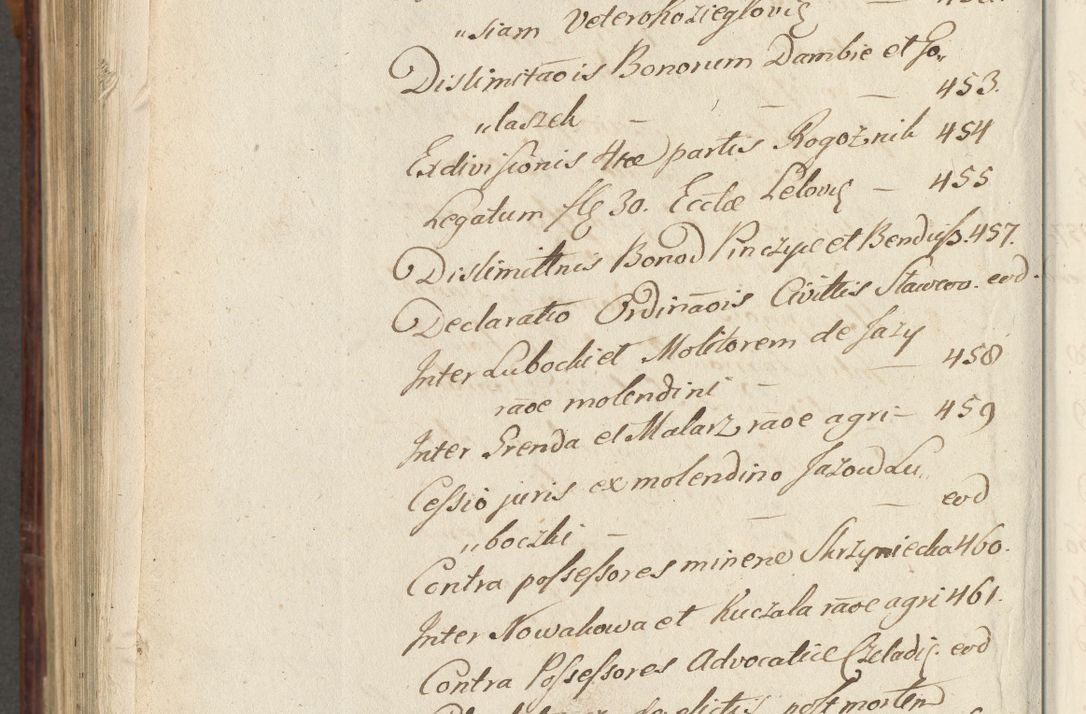 „siam Veterokozieglovię
Dislimitaõis Bonorum Dambie et Go„
„laszek — — — 453.
Exdivisionis 4tæ partis Rogoźnik 454
Legatum flę 30. Ecclæ Lelovię — 455
Dislimittnis Bonoꝝ Pinczyce et Bendusß. 457.
Declaratio Ordinãois Civittis Slawcov. eod.
Inter Lubocki et Molitorem de Jazy
rãoe molendini — — 458
Inter Grenda et Malarz rãoe agri — 459
Cessio juris ex molendino Jazow Lu„
„boczki — — — eod
Contra possessores mineræ Skrzyniecka 460.
Inter Nowakowa et Kuczala rãoe agri 461.
Contra Possessores Advocatiæ Czeladię. eod
post mortem